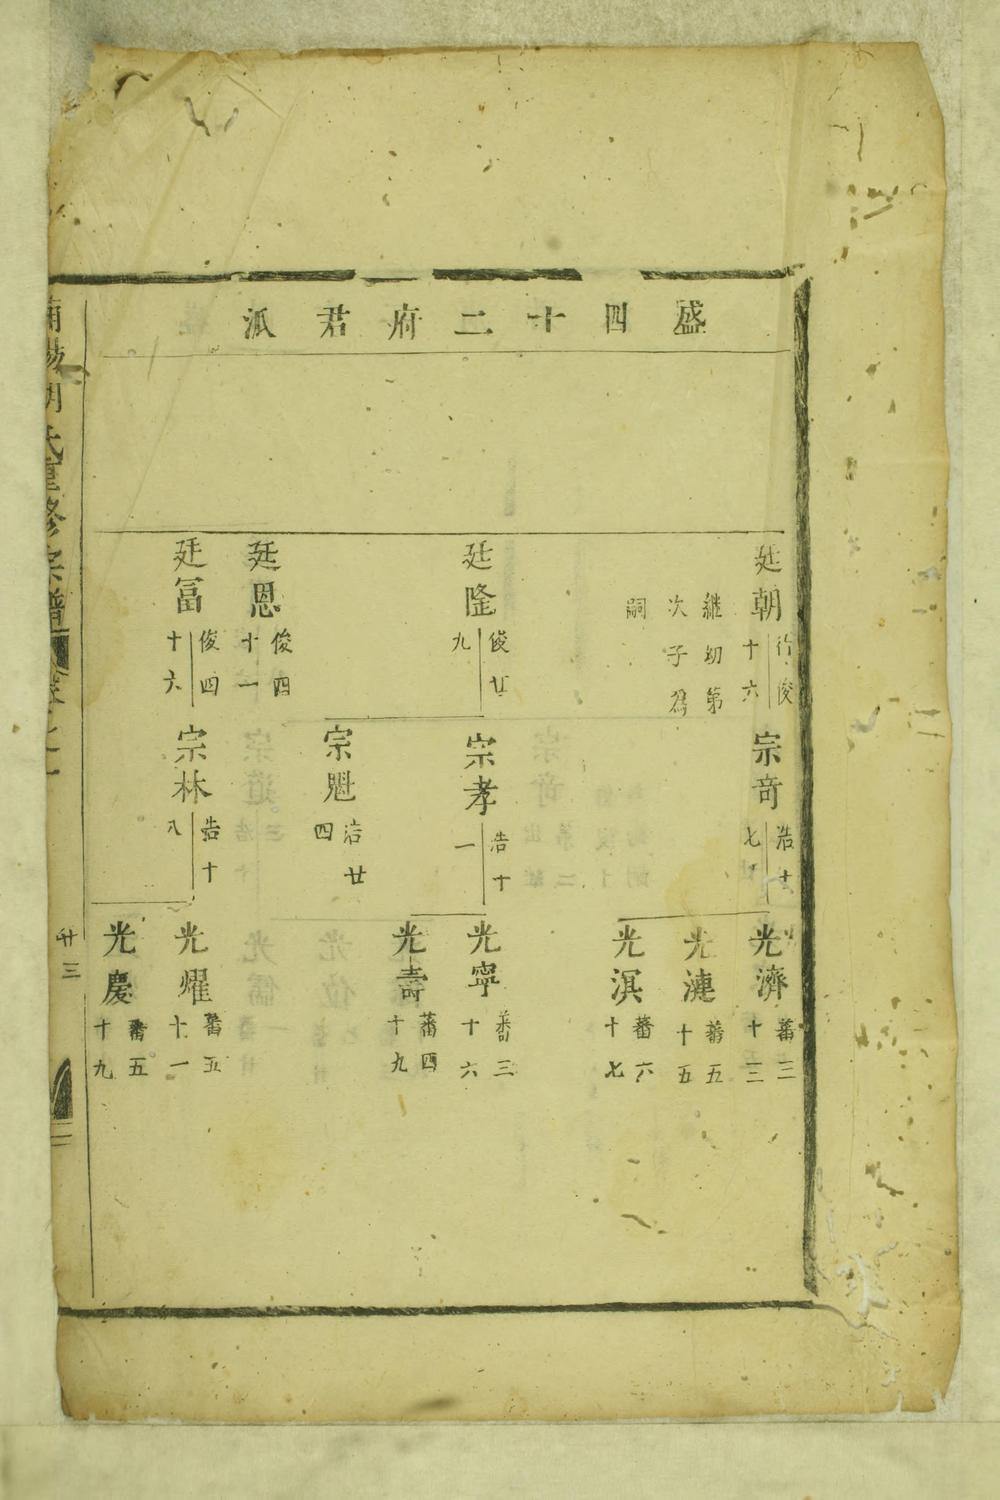 盛四十二府君派
廷朝
行俊
十六
繼幼弟
次子爲
嗣
廷隆
俊廿
九
廷恩
俊四
十一
廷冨
俊四
十六
宗奇
浩十
七
宗孝
浩十
一
宗魁
浩廿
四
宗林
浩十
八
光濟
蕃三
十三
光漣
蕃五
十五
光溟
蕃六
十七
光寧
蕃三
十六
光壽
蕃四
十九
光耀
蕃五
十一
光慶
蕃五
十九
氏重修宗譜
廿三